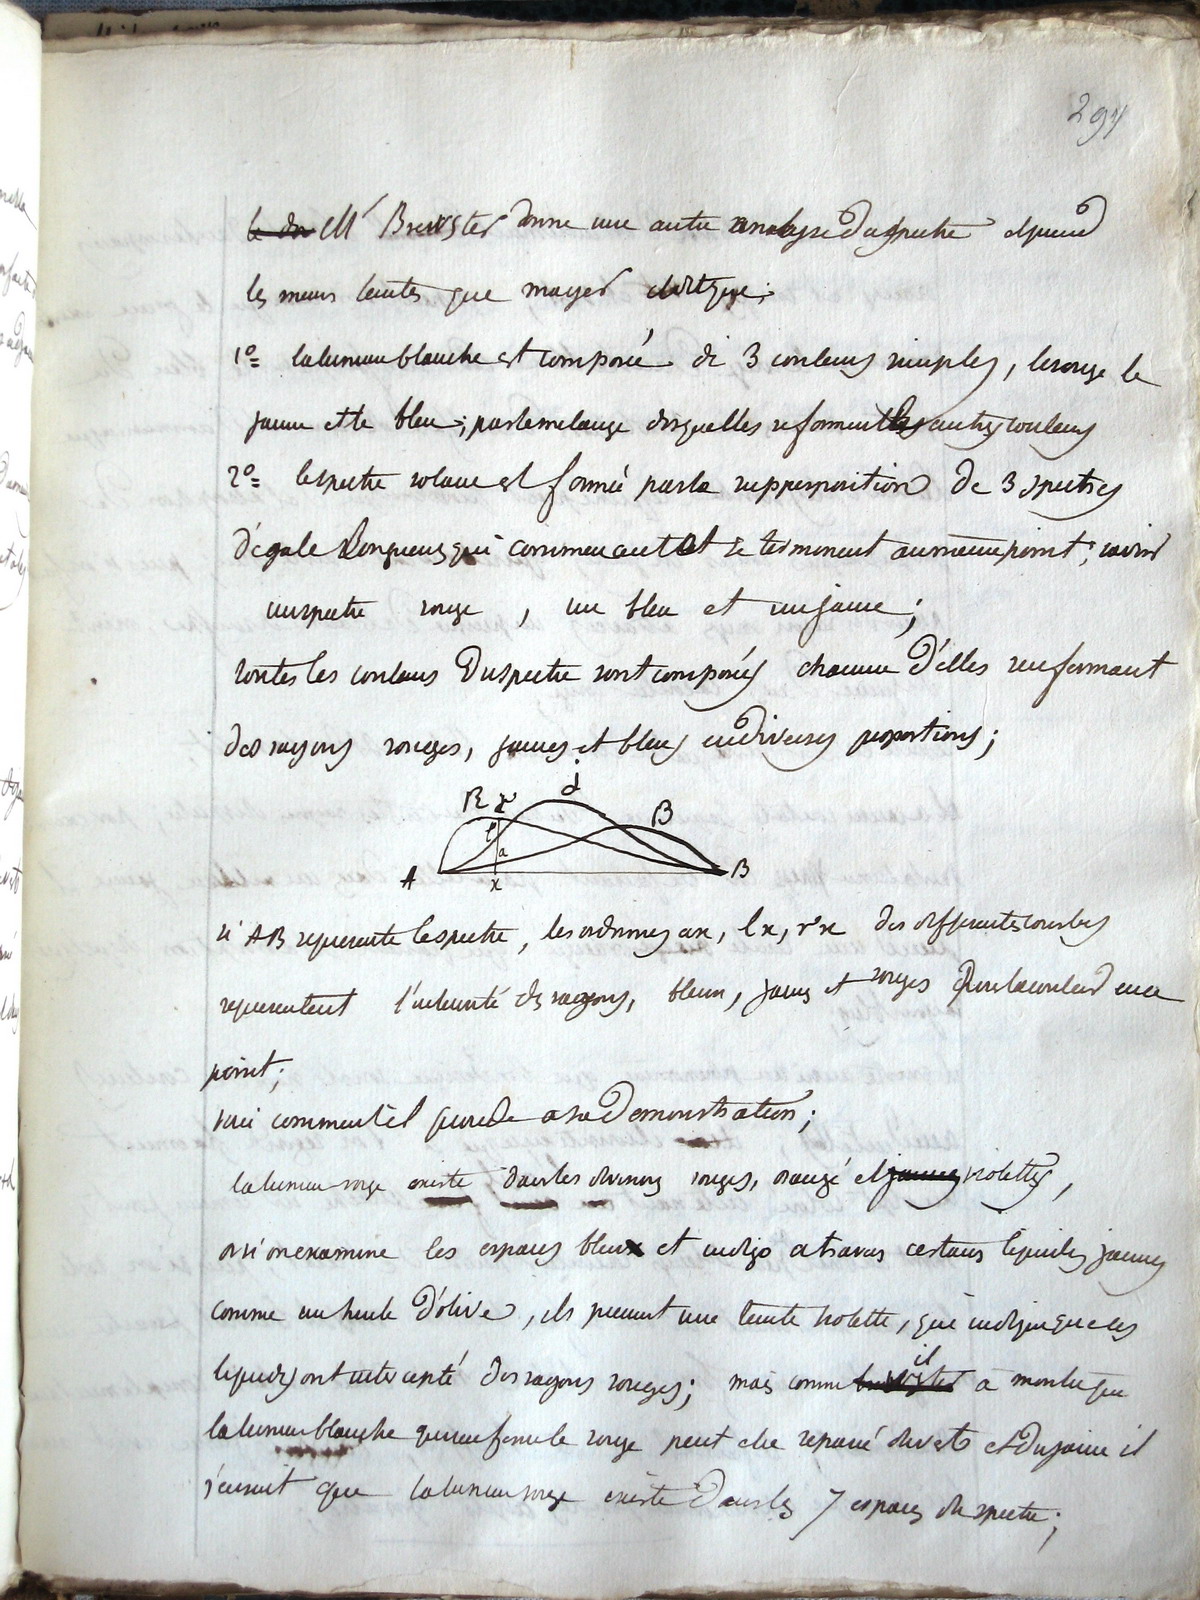 297
le don Mr Brewster donne une autre analyse du spectre et prend
les memes teintes que mayer
1o= la lumiere blanche est composée de 3 couleurs simples, le rouge le
jaune et le bleu; par le melange desquelles se forment les autres couleurs
2o= le spectre solaire est formé par la superposition de 3 spectres
d'égale longueur qui commencent et se terminent au meme point; savoir
un spectre rouge, un bleu et un jaune;
toutes les couleurs du spectre sont composées chacune d'elles renfermant
des rayons rouges, jaunes et bleus en diverses proportions;
R r j B
a
A x B
si AB represente le spectre, les ordonnes ax, lx, r'x des differentes courbes
representent l'intensité des rayons, bleus, jaunes et rouges pour la couleur en ce
point;
voici comment il procede a sa demonstration;
la lumiere rouge existe dans les divisions rouges, orangé et jaunes violettes,
or si on examine les espaces bleux et indigo a travers certains liquides jaunes
comme un huile d'olive, ils prennent une teinte violette, qui indique que ces
liquides ont intercepté des rayons rouges; mais comme brewster il a montré que
la lumiere blanche qui renferme le rouge peut etre separé du vert et du jaune il
s'ensuit que la lumiere rouge existe dans les 7 espaces du spectre;